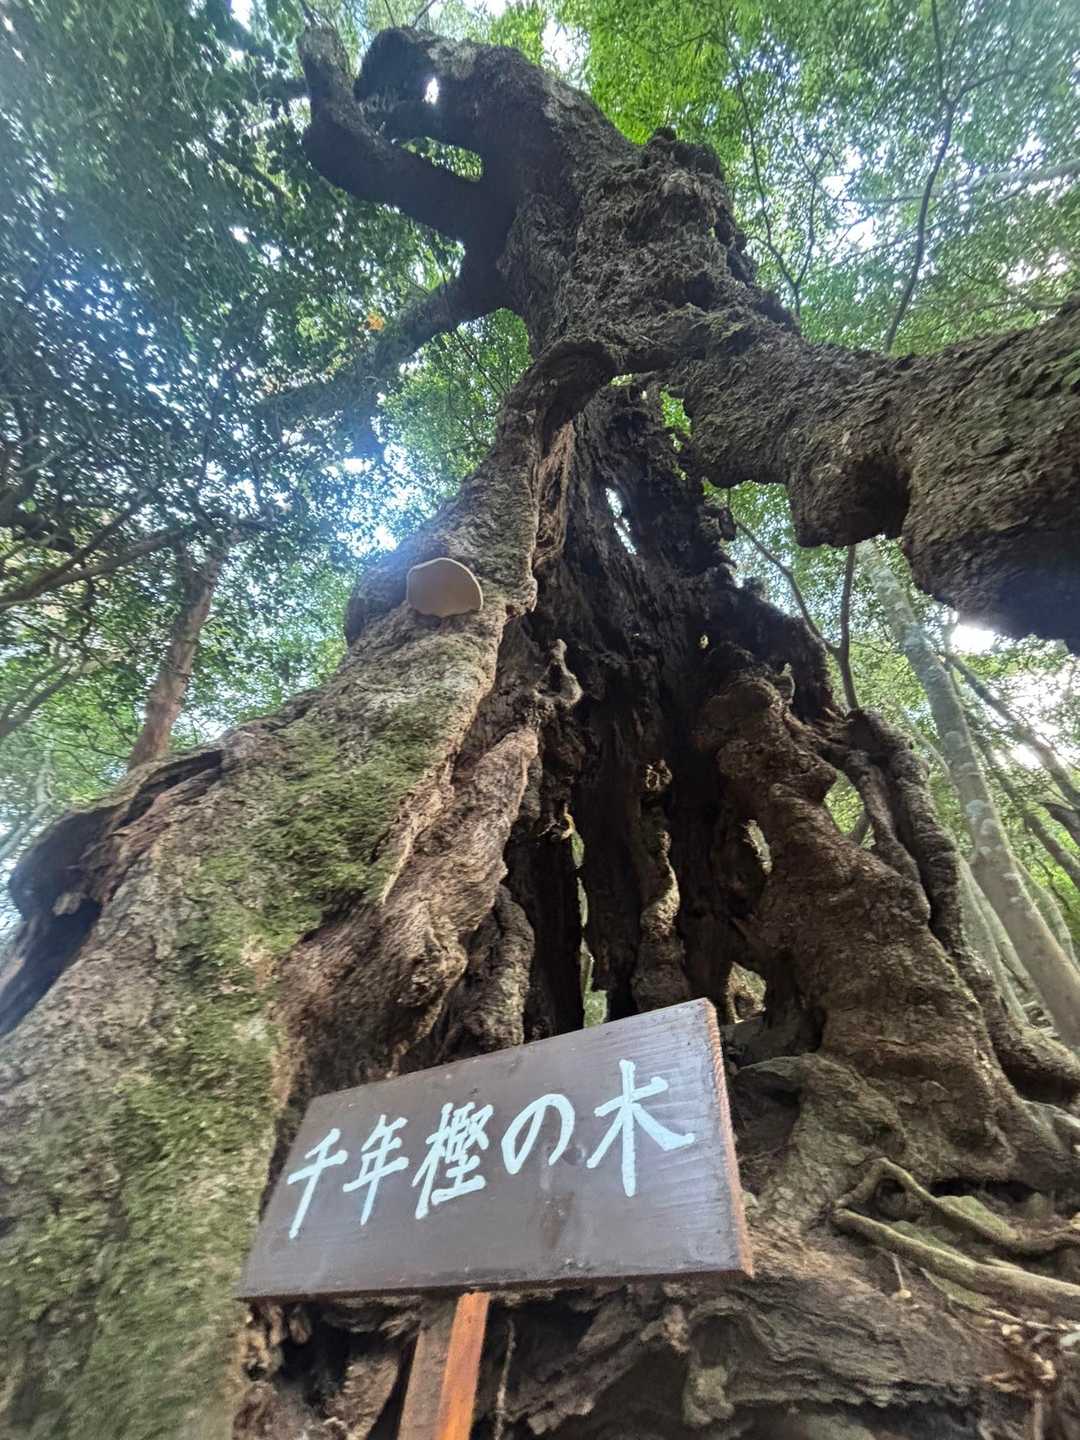 千年樫の木